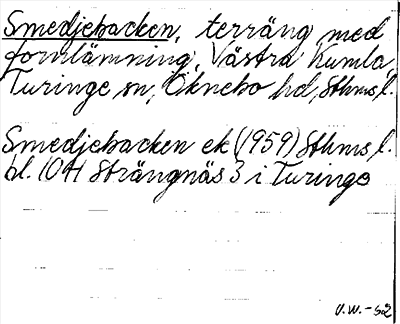 Smedjebacken, terräng med
fornlämning, Västra Kumla,
Turinge sn, Öknebo hd, Sthms l.
Smedjebacken ek (1959) Sthms l.
bl. 104 Strängnäs 3 i Turinge
V.W.-62